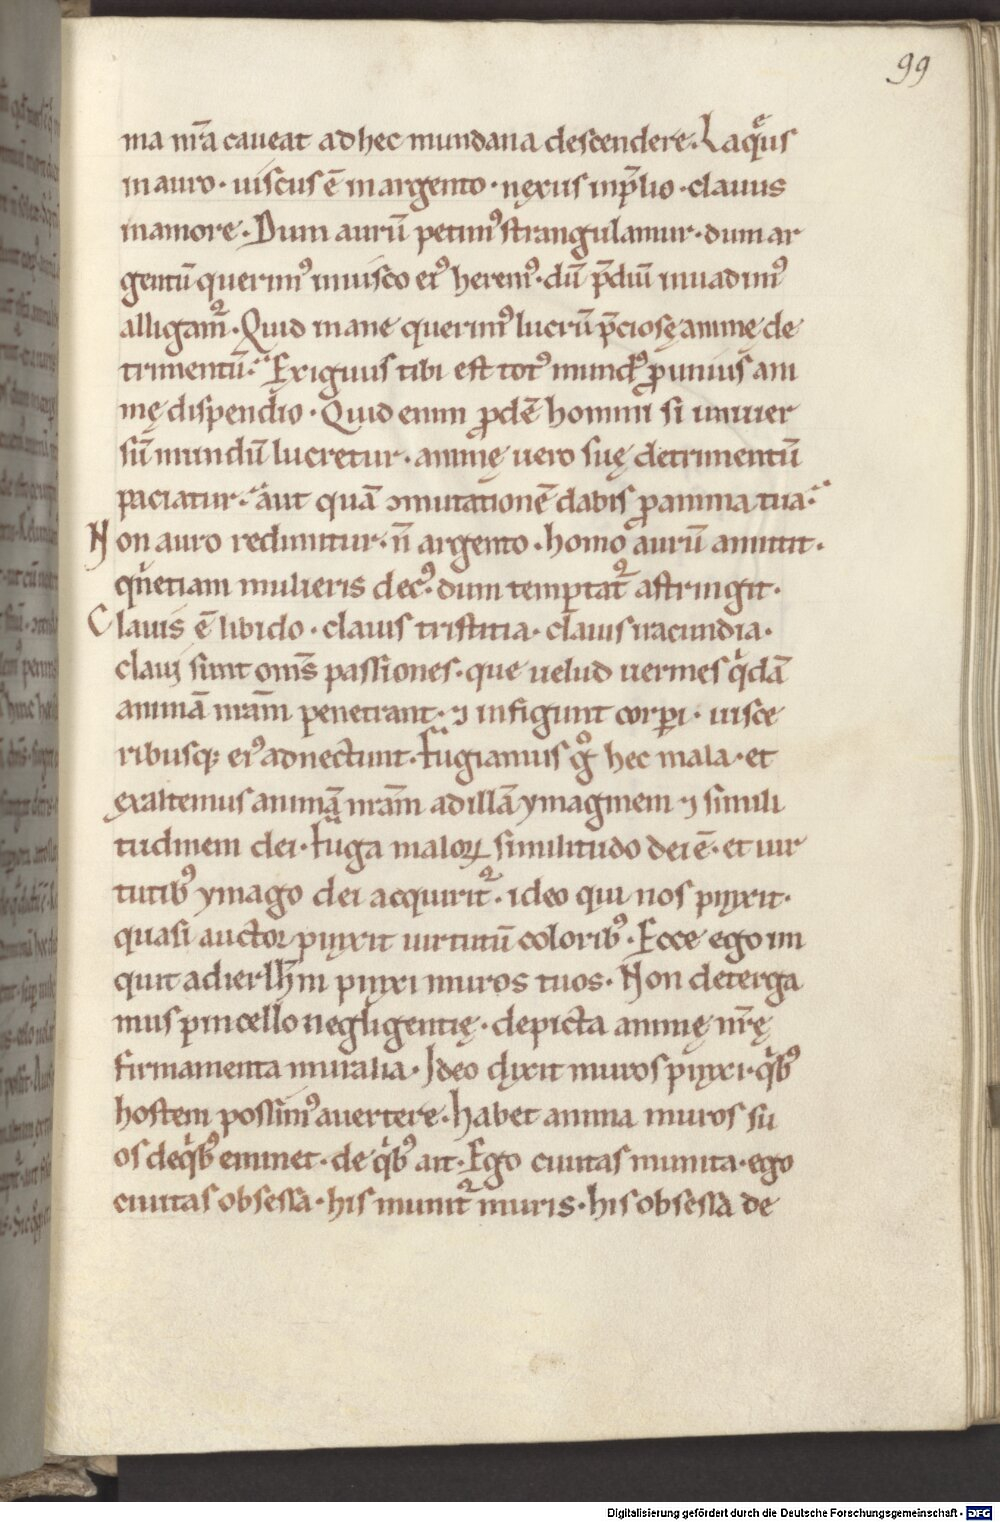 99
ma nr̄a caueat ad hec mundana descendere. Laqͤus
in auro · uiscus ē in argento · nexus in p̄dio · clauus
in amore. Dum aurū petimꝰ strangulamur · dum ar
gentū querimꝰ in uisco eiꝰ heremꝰ · dū p̄diū inuadimꝰ
alligamᷣ. Quid inane querimꝰ lucrū p̄ciosę animę de
trimentū. Exiguus tibi est totꝰ mundꝰ ꝓ unius ani
mę dispendio. Quid enim ꝓdē homini si uniuer
sū mundū lucretur · animę uero suę detrimentū
paciatur. aut quā ꝯmutationē dabis ꝓ anima tua.
Non auro redimitur · n̄ argento · homo aurū amittit.
qͥn etiam mulieris decꝰ · dum temptatᷣ astringit.
Clauis ē libido · clauis tristitia · clauis iracundia.
claui sunt om̄s passiones · que uelud uermes qͥdā
animā nrām penetrant · ⁊ infigunt corpori · uisce
ribusq; eiꝰ adnectunt. Fugiamus gͦ hec mala · et
exaltemus animā nrām ad illā ymaginem ⁊ simili
tudinem dei. Fuga maloꝝ similitudo dei ē · et uir
tutibꝰ ymago dei acquiritᷣ. ideo qui nos pinxit.
quasi auctor pinxit uirtutū coloribꝰ. Ecce ego in
quit ad ierl̄m pinxi muros tuos. Non deterga
mus pincello negligentię · depicta animę nr̄ę
firmamenta muralia. Ideo dixit muros pinxi · qͥbꝰ
hostem possimꝰ auertere. Habet anima muros su
os de qͥbꝰ eminet · de qͥbꝰ ait. Ego ciuitas munita · ego
ciuitas obsessa · his munitᷣ muris · his obsessa de
Digitalisierung gefördert durch die Deutsche Forschungsgemeinschaft - DFG